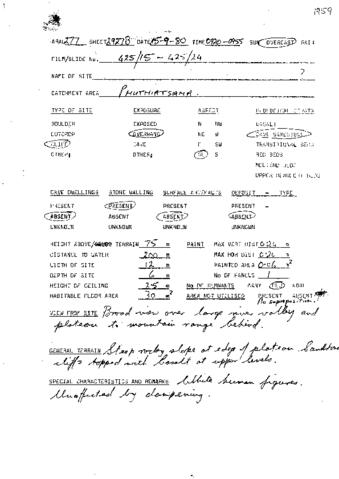 1959
ARAL 277 SHEET 2927B DATE 15-9-80 TIME 0920-0955 SUN OVERCAST RAIN
FILM/SLIDE No. 425/15 - 425/24
NAME OF SITE ?
CATCHMENT AREA PHUTHIATSANA.
TYPE OF SITE EXPOSURE ASPECT
BOULDER EXPOSED N NW BASALT
OUTCROP OVERHANG NE W CAVE SANDSTONE
CLIFF CAVE E SW TRANSITIONAL BEDS
OTHER: OTHER: SE S RED BEDS
MOLTENO BEDS
UPPER BEAUFORT BEDS
CAVE DWELLINGS STONE WALLING SURFACE ARTEFACTS DEPOSIT - TYPE
PRESENT PRESENT PRESENT PRESENT -
ABSENT ABSENT ABSENT ABSENT
UNKNOWN UNKNOWN UNKNOWN UNKNOWN
HEIGHT ABOVE TERRAIN 75 m PAINT MAX VERT DIST m
DISTANCE TO WATER 200 m MAX HOR DIST m
WIDTH OF SITE 12 m PAINTED AREA m²
DEPTH OF SITE 6 m No OF PANELS 1
HEIGHT OF CEILING 2.5 m No OF REMNANTS MANY FEW NON
HABITABLE FLOOR AREA 30 m² AREA NOT UTILISED PRESENT ABSENT
No superposition.
VIEW FROM SITE Broad view over large river valley and
plateau to mountain range behind.
GENERAL TERRAIN Steep rocky slope at edge of plateau. Sandstone
cliffs topped with basalt at upper levels.
SPECIAL CHARACTERISTICS AND REMARKS White human figures.
Unaffected by dampening.